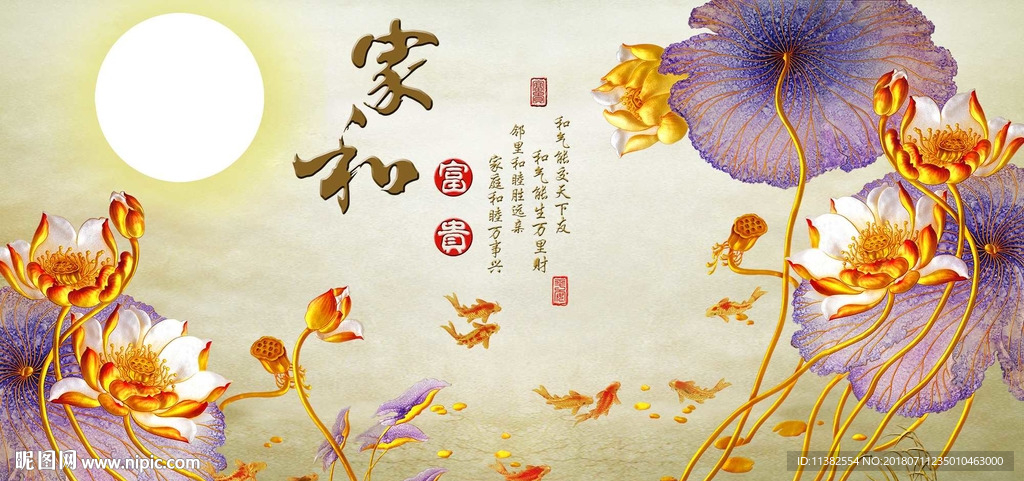 家和
富
貴
和气能交天下友
和气能生万里财
邻里和睦胜远亲
家庭和睦万事兴
昵图网 www.nipic.com
ID:11382554 NO:20180711235010463000